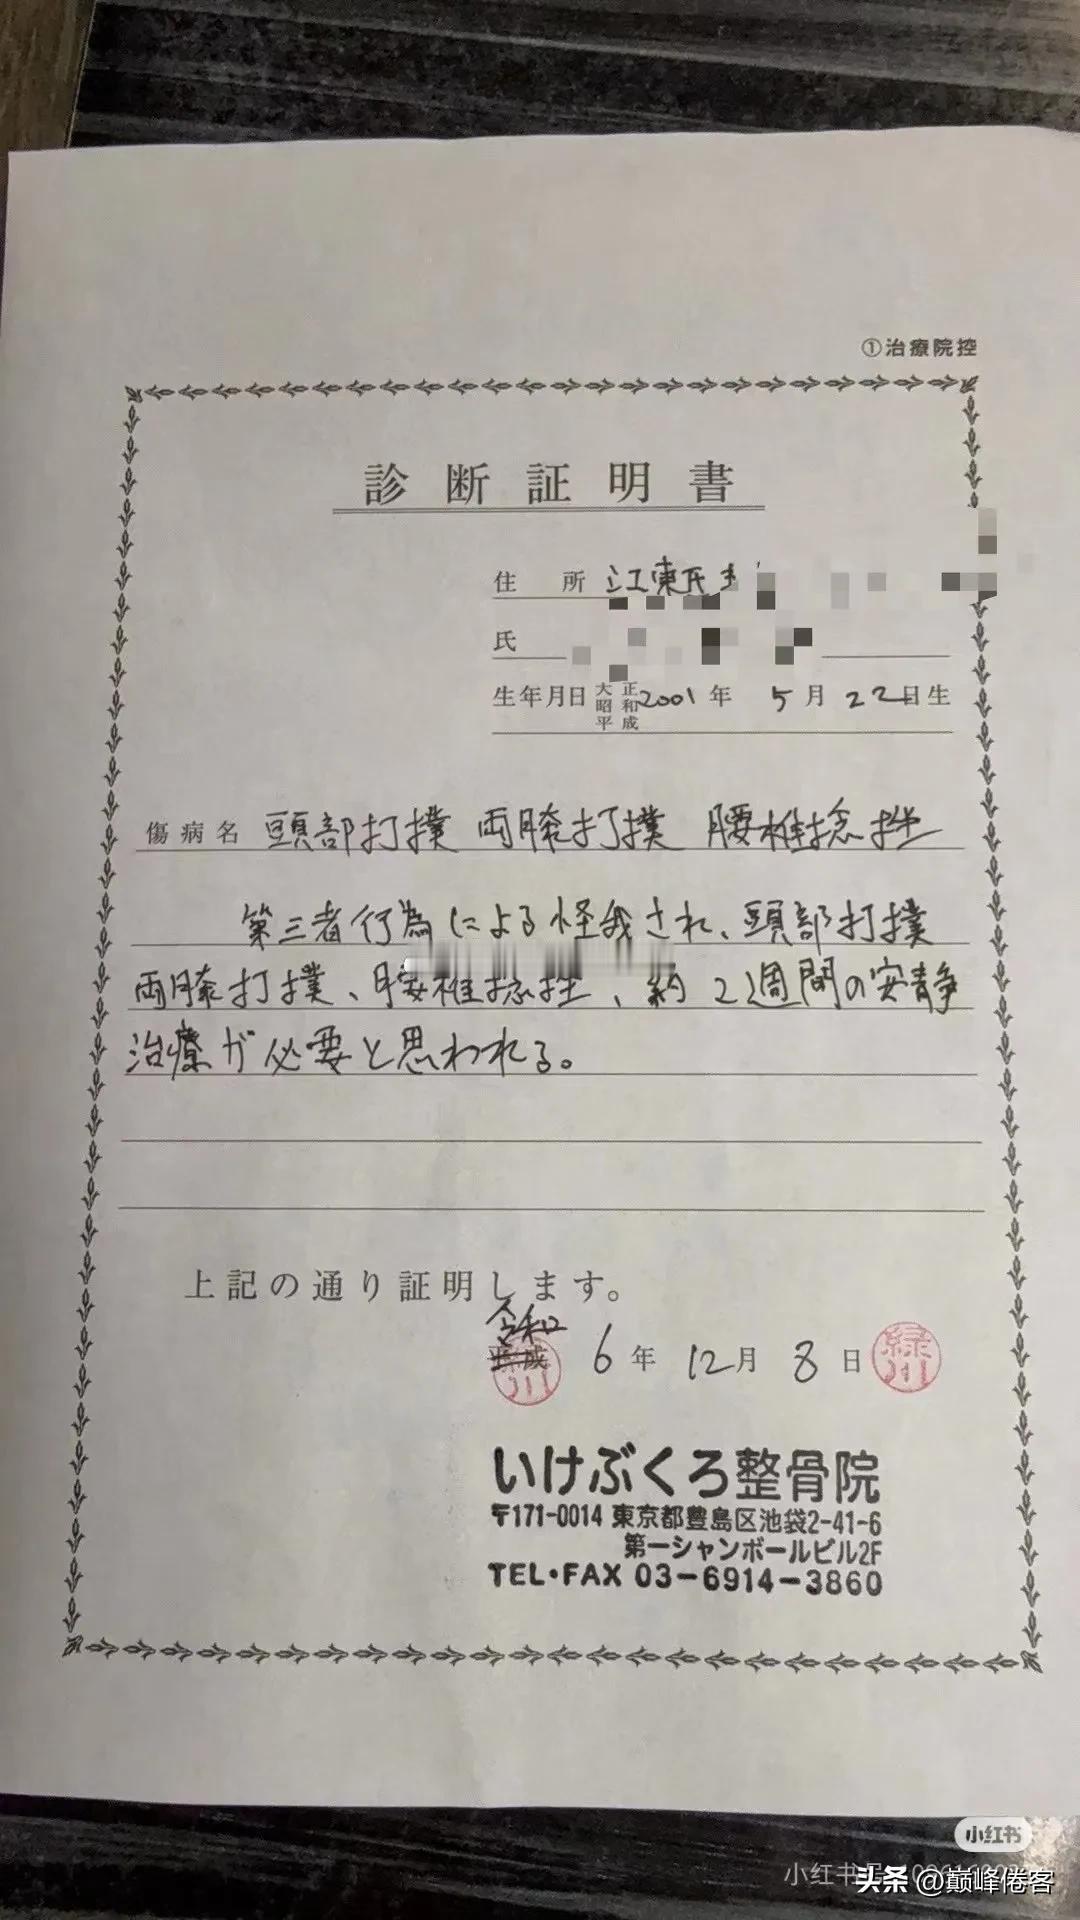 ①治療院控
診断証明書
住所 江東区
氏
生年月日 大正 昭和 平成 2001年 5月 22日生
傷病名 頭部打撲 両膝打撲 腰椎捻挫
第三者行為による怪我され、頭部打撲
両膝打撲、腰椎捻挫、約2週間の安静
治療が必要と思われる。
上記の通り証明します。
令和
平成 6年 12月 8日
緑川
いけぶくろ整骨院
〒171-0014 東京都豊島区池袋2-41-6
第一シャンボールビル2F
TEL・FAX 03-6914-3860
小红书
小红书号
头条 @巅峰倦客